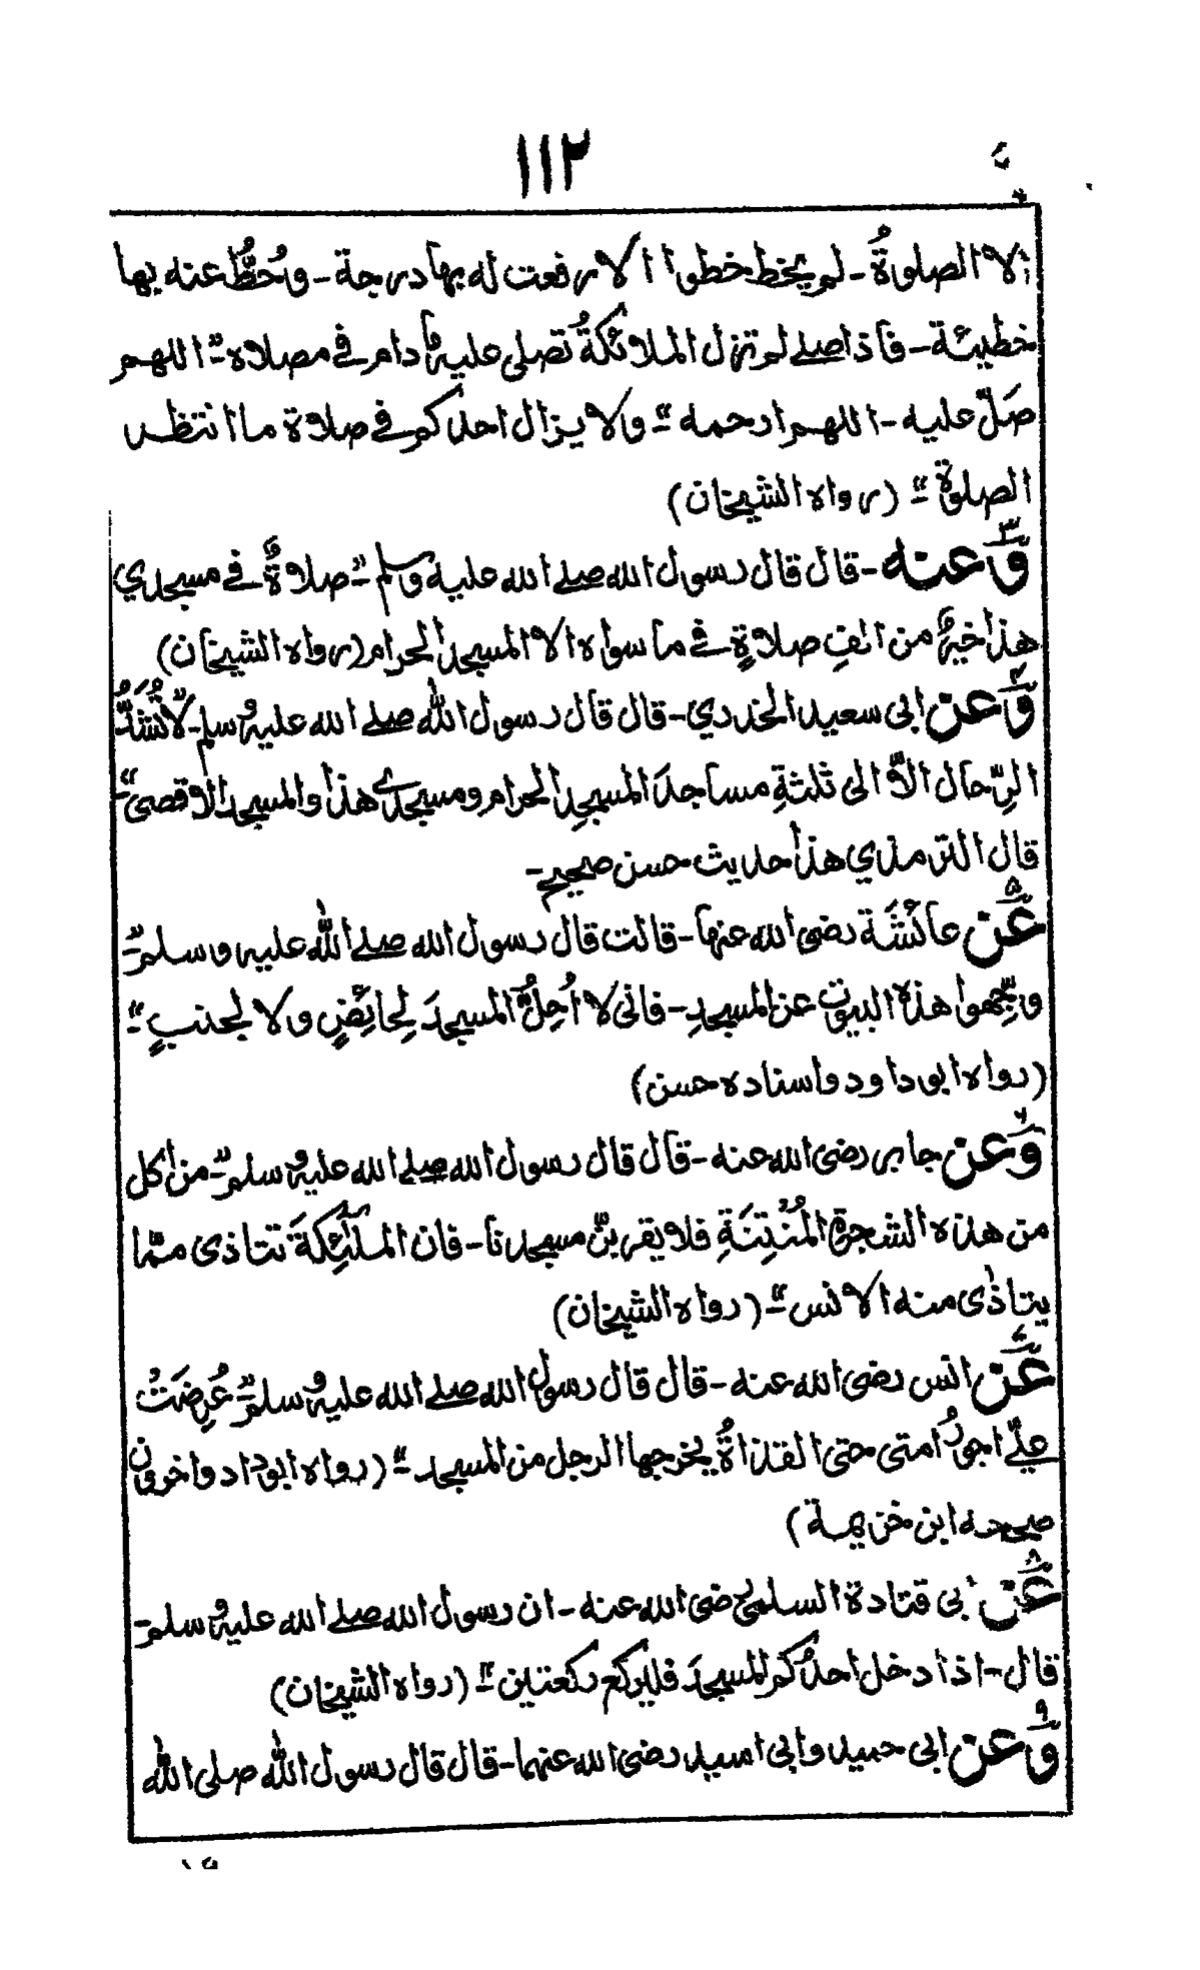 ١١٢
الا الصلوةُ - لم يخط خطوا الا رفعت له بها درجة - وحُطُّ عنه بها
خطيئة - فاذا صلے لم تزل الملائكةُ تصلى عليه ما دام فے مصلاه " اللهم
صَلِّ عليه - اللهم ارحمه " ولا يزال احدكم فے صلاة ما انتظر
الصلوة " (رواه الشيخان)
٣ وَعنه - قال قال رسول الله صلے الله عليه وسلم " صلاةٌ فے مسجدي
هذا خيرٌ من الفِ صلاةٍ فے ما سواه الا المسجد الحرام (رواه الشيخان)
٤ وَعن ابى سعيد الخدري - قال قال رسول الله صلے الله عليه وسلم - لاتُشَدُّ
الرِّحال الاَّ الى ثلثةِ مساجدَ المسجدِ الحرام ومسجدے هذا والمسجد الاقصىٰ "
قال الترمذي هذا حديث حسن صحيح -
٥ عَن عائشَة رضى الله عنها - قالت قال رسول الله صلے الله عليه وسلم "
وجِّهوا هذه البيوت عن المسجدِ - فانى لا اُحِلُّ المسجدَ لِحائِضٍ ولا لجنبٍ "
(رواه ابو داود واسناده حسن)
٦ وَعن جابر رضى الله عنه - قال قال رسول الله صلے الله عليه وسلم " من اكل
من هذه الشجرة المُنْتِنَةِ فلا يقربنَّ مسجدنا - فان الملٰئِكةَ تتاذى ممّا
يتاذٰى منه الانس " (رواه الشيخان)
٧ عَن انس رضى الله عنه - قال قال رسول الله صلے الله عليه وسلم " عُرِضَتْ
علىَّ اجورُ امتى حتى القذاةُ يخرجها الرجل من المسجد " (رواه ابو داد واخرون
صححه ابن خزيمة)
٨ عَن ابى قتادة السلمى رضى الله عنه - ان رسول الله صلے الله عليه وسلم "
قال - اذا دخل احدُكم المسجدَ فليركع ركعتين " (رواه الشيخان)
٩ وَعن ابى حبيد وابى اسيد رضى الله عنهما - قال قال رسول الله صلى الله